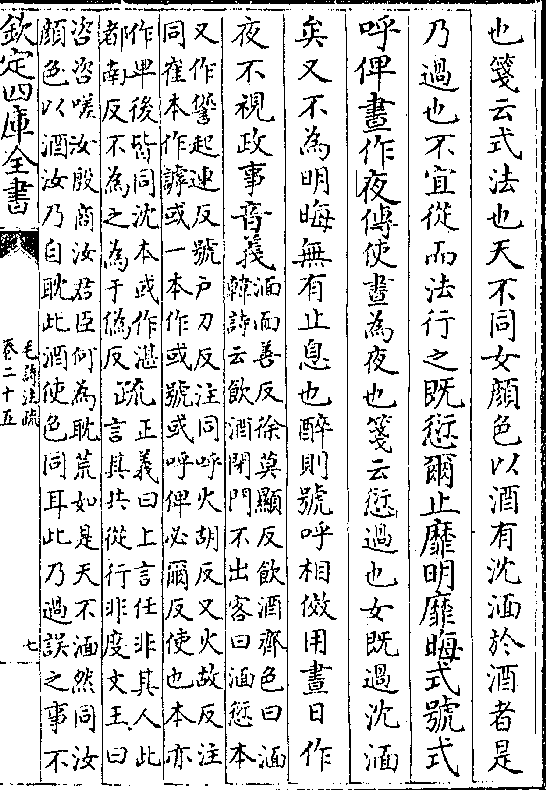 也箋云式法也天不同女顔色以酒有沈湎於酒者是
乃過也不宜從而法行之既愆爾止靡明靡晦式號式
呼俾晝作夜傳使晝為夜也箋云愆過也女既過沈湎
矣又不為明晦無有止息也醉則號呼相傚用晝日作
夜不視政事音義湎面善反徐莫顯反飲酒齊色曰湎
韓詩云飲酒閉門不出客曰湎愆本
又作諐起連反號户刀反注同呼火胡反又火故反注
同崔本作謼或一本作或號或呼俾必爾反使也本亦
作卑後皆同沈本或作湛
都南反不為之為于偽反疏正義曰上言任非其人此
言其共從行非度文王曰
咨咨嗟汝殷商汝君臣何為耽荒如是天不湎然同汝
顔色以酒汝乃自耽此酒使色同耳此乃過誤之事不
欽定四庫全書
毛詩注疏
卷二十五
七